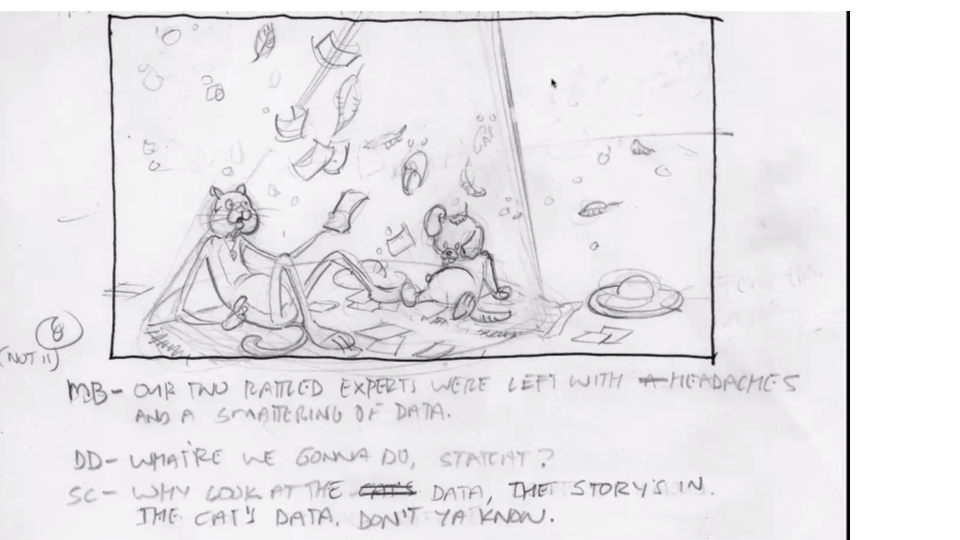 8
(NOT 11)
MB- OUR TWO RATTLED EXPERTS WERE LEFT WITH A HEADACHES
AND A SMATTERING OF DATA.
DD- WHAT'RE WE GONNA DO, STATCAT?
SC- WHY LOOK AT THE CAT'S DATA, THE STORY'S IN.
THE CAT'S DATA. DON'T YA KNOW.